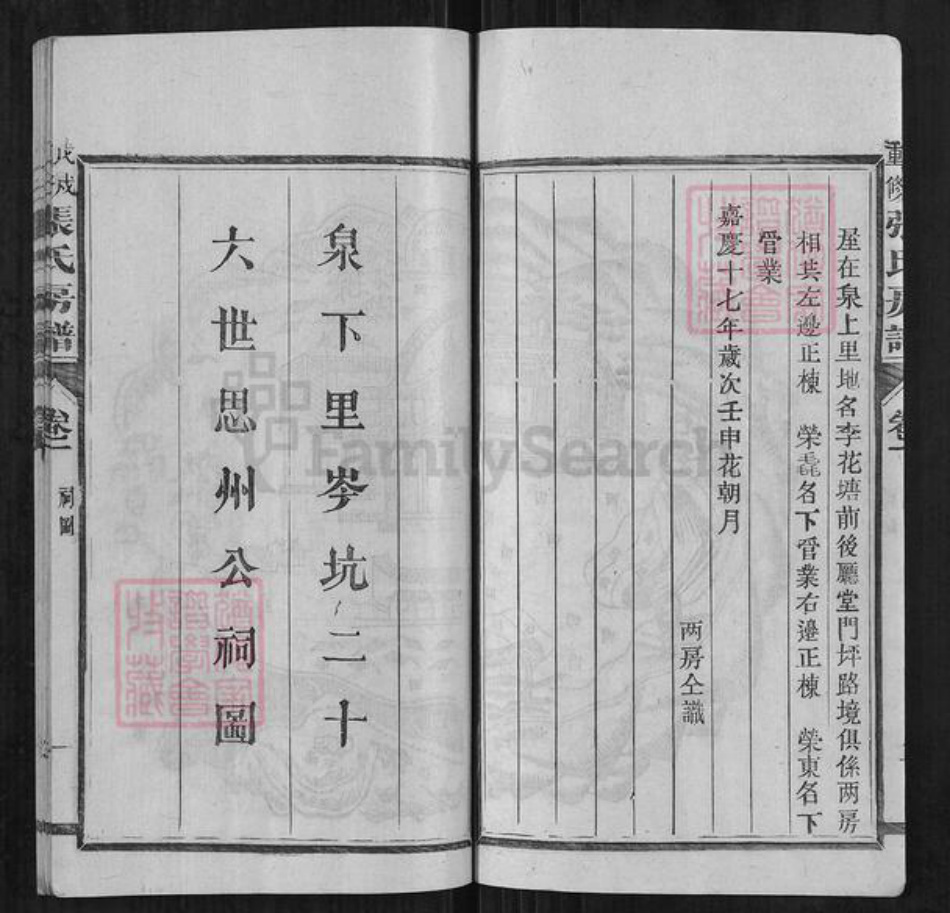 屋在泉上里地名李花塘前後廳堂門坪路境俱係两房
相共左邊正棟　榮毳名下管業右邊正棟　榮東名下
管業
嘉慶十七年歲次壬申花朝月
两房仝識
泉下里岑坑二十
六世思州公祠圖
張氏房譜
卷一
祠圖
重修張氏房譜
FamilySearch